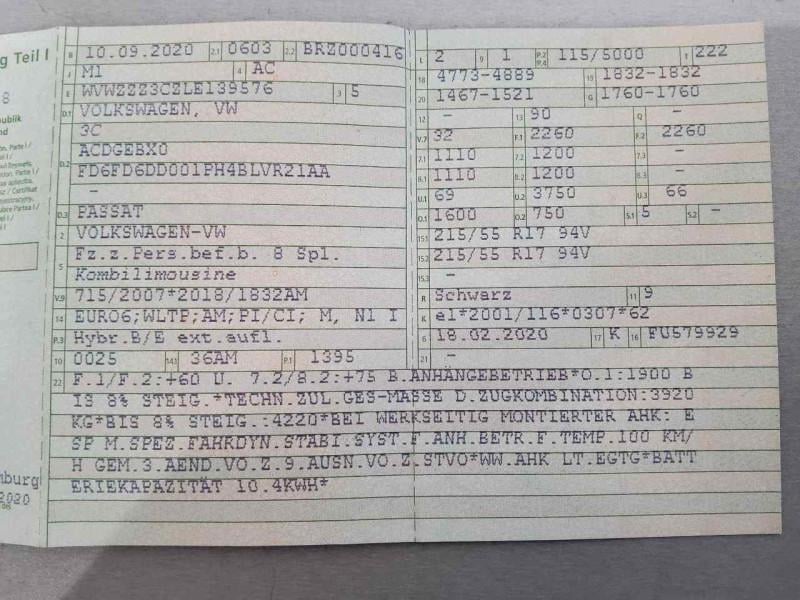 g Teil I
8
publik
nd
B 10.09.2020 2.1 0603 2.2 BRZ000416
J M1 4 AC
E WVWZZZ3CZLE139576 3 5
D.1 VOLKSWAGEN, VW
3C
D.2 ACDGEBX0
FD6FD6DD001PH4BLVR21AA
-
D.3 PASSAT
2 VOLKSWAGEN-VW
5 Fz.z.Pers.bef.b. 8 Spl.
Kombilimousine
V.9 715/2007*2018/1832AM
14 EURO6;WLTP;AM;PI/CI; M, N1 I
P.3 Hybr.B/E ext.aufl.
10 0025 14.1 36AM P.1 1395
L 2 9 1 P.2 P.4 115/5000 T 222
18 4773-4889 19 1832-1832
20 1467-1521 G 1760-1760
12 - 13 90 Q -
V.7 32 F.1 2260 F.2 2260
7.1 1110 7.2 1200 7.3 -
8.1 1110 8.2 1200 8.3 -
U.1 69 U.2 3750 U.3 66
O.1 1600 O.2 750 S.1 5 S.2 -
15.1 215/55 R17 94V
15.2 215/55 R17 94V
15.3 -
R Schwarz 11 9
K e1*2001/116*0307*62
6 18.02.2020 17 K 16 FU579929
21 -
22 F.1/F.2:+60 U. 7.2/8.2:+75 B.ANHÄNGEBETRIEB*O.1:1900 B
IS 8% STEIG.*TECHN.ZUL.GES-MASSE D.ZUGKOMBINATION:3920
KG*BIS 8% STEIG.:4220*BEI WERKSEITIG MONTIERTER AHK: E
SP M.SPEZ.FAHRDYN.STABI.SYST.F.ANH.BETR.F.TEMP.100 KM/
H GEM.3.AEND.VO.Z.9.AUSN.VO.Z.STVO*WW.AHK LT.EGTG*BATT
ERIEKAPAZITÄT 10.4KWH*
mburg
2020